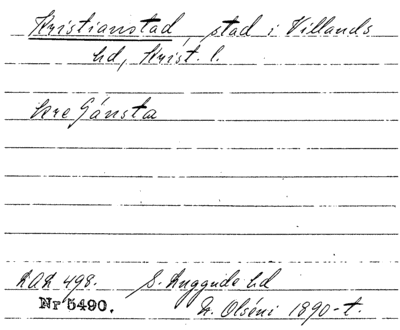 Kristianstad, stad i Villands
hd, Krist. l.
kre Gánsta
DAL 498. S. Luggude hd
Nr 5490. N. Olséni 1890-t.